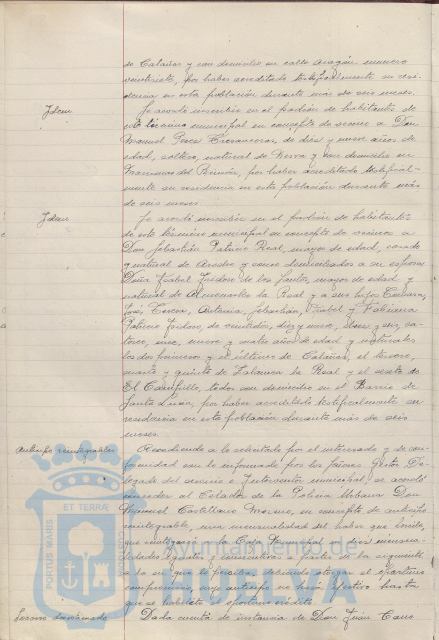 de Calañas y con domicilio en calle Aragón número
veintisiete, por haber acreditado testificalmente su resi-
dencia en esta población durante más de seis meses.
Idem
Se acordó inscribir en el padrón de habitantes de
este término municipal en concepto de vecino a Don
Manuel Perez, de diez y nueve años de
edad, soltero, natural de Nerva y con domicilio en
por haber acreditado testifical-
mente su residencia en esta población durante más
de seis meses.
Idem
Se acordó inscribir en el padrón de habitantes
de este término municipal en concepto de vecinos a
Don Sebastián Patricio Real, mayor de edad, casado
y natural de Aroche y como domiciliados a su esposa
Doña Isabel Isidoro de los Santos, mayor de edad y
natural de Almonaster la Real y a sus hijos
José, Teresa, Antonia, Sebastián, Isabel y
Patricio Isidoro, de veintidós, diez y nueve, diez y seis, ca-
torce, once, nueve y siete años de edad y naturales
los dos primeros y el último de Calañas, el tercero,
cuarto y quinto de Zalamea la Real y el sexto de
El Campillo, todos con domicilio en el Barrio de
Santa Lucía, por haber acreditado testificalmente su
residencia en esta población durante más de seis
meses.
Anticipo reintegrable
Accediendo a lo solicitado por el interesado y de con-
formidad con lo informado por los Señores Gestor De-
legado del servicio e Interventor municipal, se acordó
conceder al Celador de la Policía Urbana Don
Manuel Castellano Moreno, en concepto de anticipo
reintegrable, una mensualidad del haber que
que reintegrará a la Caja Municipal en diez mensua-
lidades iguales a partir de la siguiente
a la en que lo perciba, debiendo otorgar el oportuno
compromiso, cuyo anticipo se hará efectivo hasta
que se habilite el oportuno crédito.
Dada cuenta de instancia de Don Juan Cano
PORTUS MARIS ET TERRAE CUSTODIA
Ayuntamiento de
HUELVA